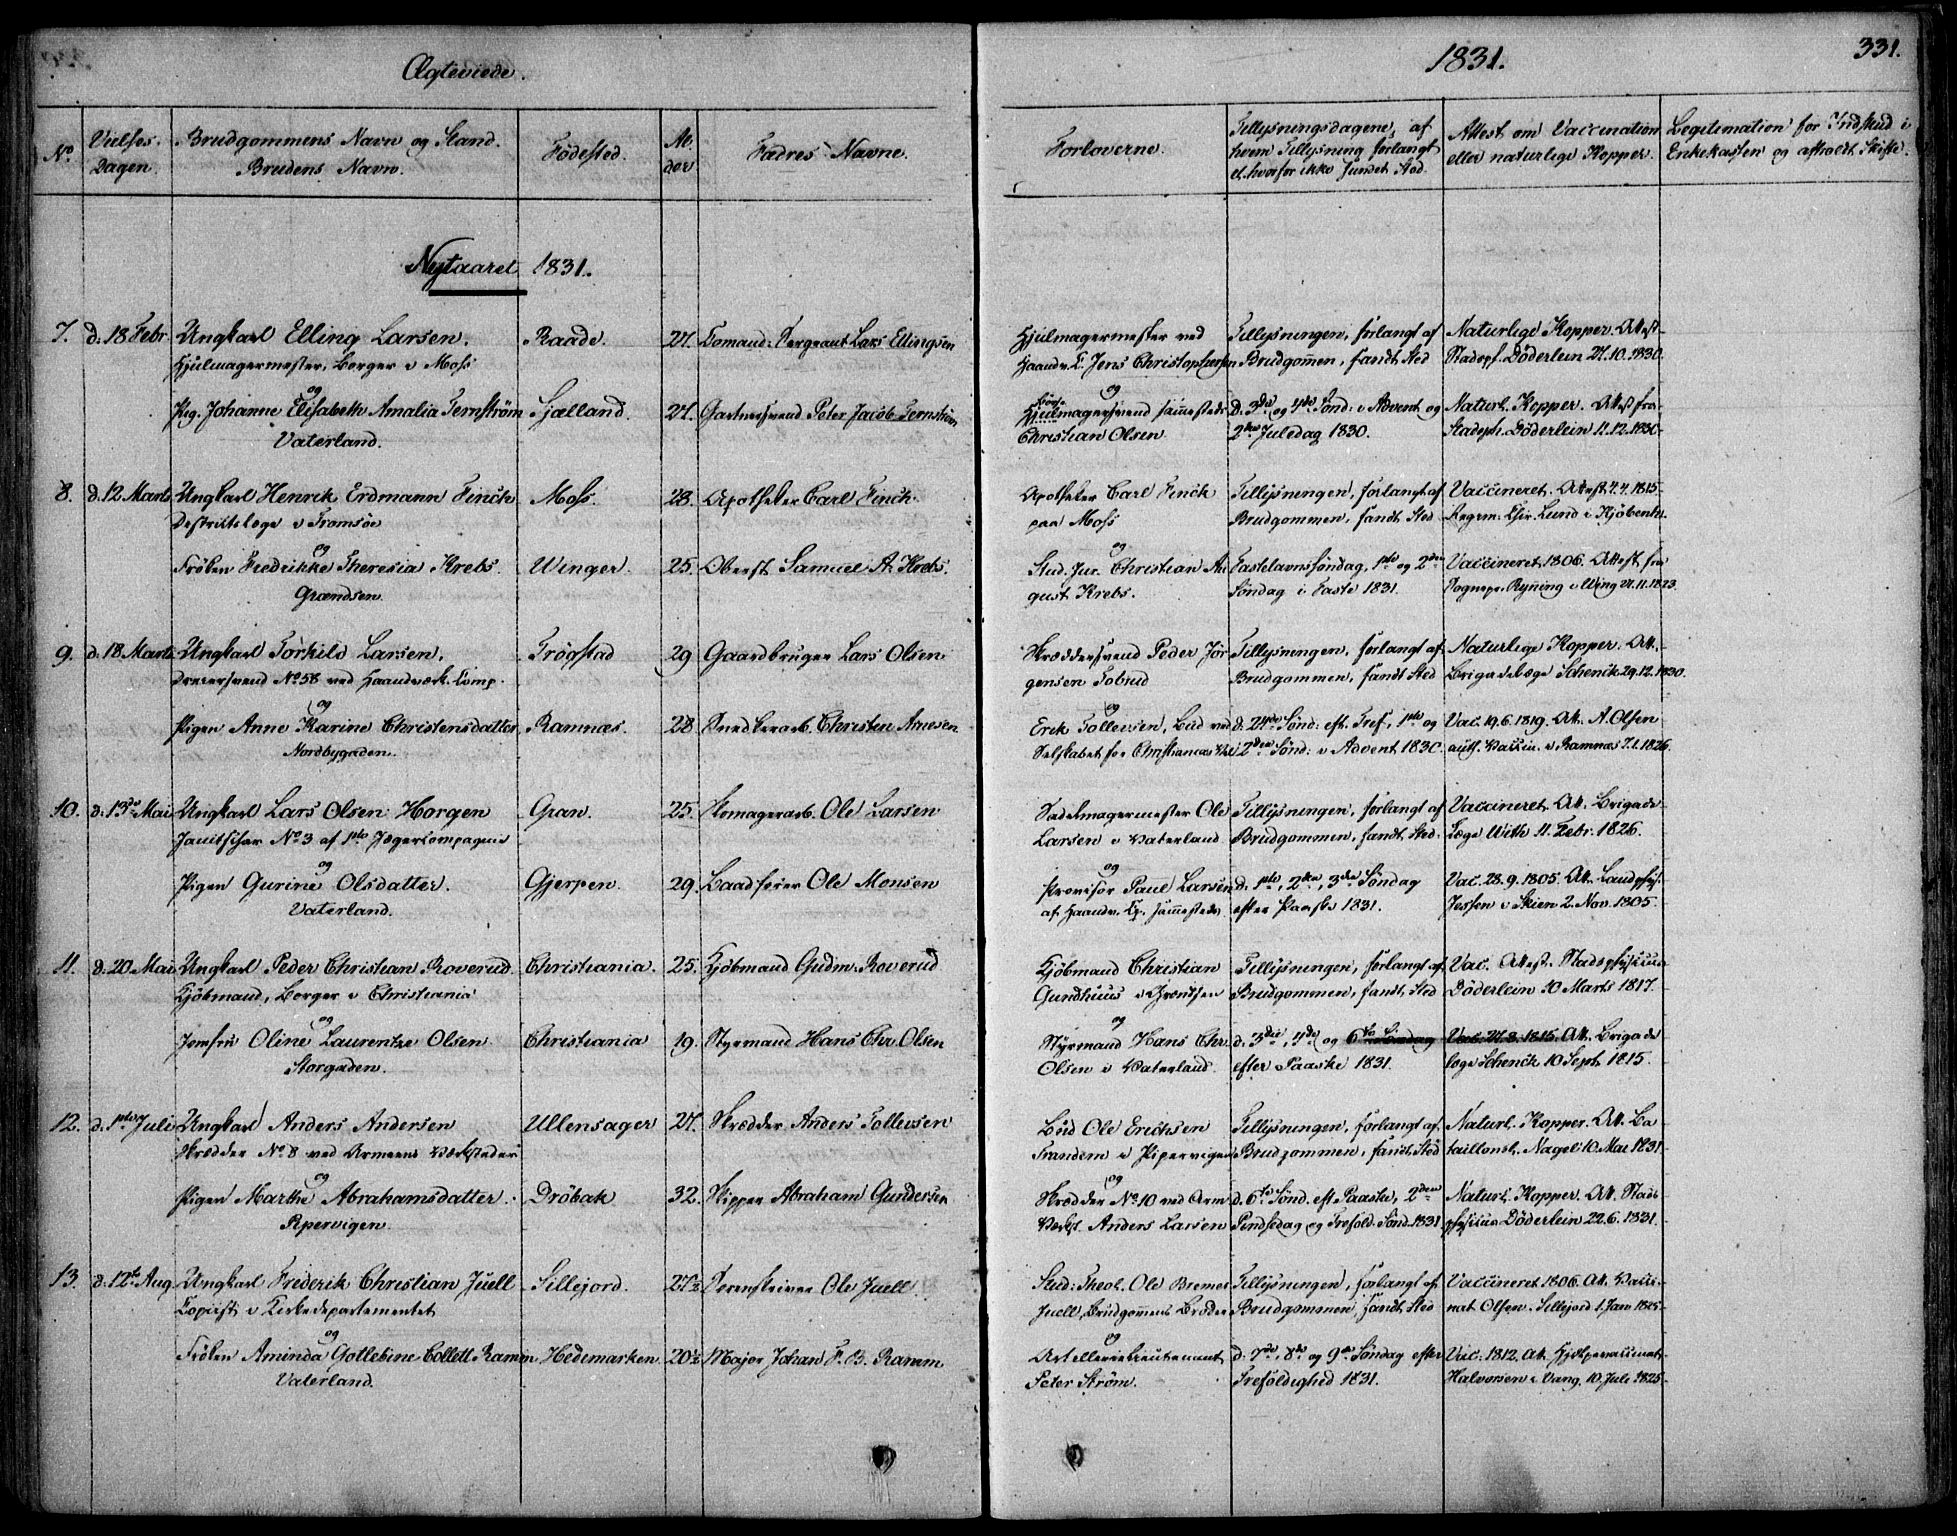 Ægteviede.
1831.
331.
No
Vielses-
Dagen.
Brudgommens Navn og Stand.
Brudens Navn.
Fødested.
Al-
der
Fædres Navne.
Forloverne.
Tillysningsdagene, af
hvem Tillysning forlangt
el. hvorfor ikke fundet Sted.
Attest om Vaccination
eller naturlige Kopper.
Legitimation for Indskud i
Enkekassen og afholdt Skifte.
Nytaaret 1831.
7. d. 18 Febr. Ungkarl Elling Larsen. Raade. 27. Comand: Sergeant Lars Ellingsen
Hjulmagermester, Borger i Moss
og
Pig. Johanne Elisabeth Amalia Fernström Sjælland. 27. Gartnersvend Peter Jacob Fernström
Vaterland.
Hjulmagermester ved Tillysningen, forlangt af Naturlige Kopper. Attest
Haandv. C. Jens Christophersen Brudgommen, fandt Sted Stadsph. Döderlein 27.10.1830.
og
Hjulmagersvend sammesteds D. 3die og 4de Sönd: i Advent og Naturl. Kopper. Attest fra
Christian Olsen 2den Juledag 1830. Stadsph. Döderlein 11.12.1830.
8. d. 12 Marts Ungkarl Henrik Erdmann Finck Moss. 28. Apotheker Carl Finck.
Destriktslæge i Tromsøe
og
Fröken Fredrikke Theresia Krebs. Winger. 25. Oberst Samuel A. Krebs
Grændsen.
Apotheker Carl Finck Tillysningen, forlangt af Vaccineret. Attest 4.4.1815
paa Moss Brudgommen, fandt Sted Regim. Chir. Lund i Kjöbenh.
og
Stud. Jur. Christian Au- Fastelavnssöndag, 1ste og 2den Vaccineret 1806. Attest fra
gust Krebs. Söndag i Faste 1831. Sognepr. Ryning i Wing. 21.11.1823.
9. d. 18 Marts Ungkarl Torkild Larsen. Trögstad 29 Gaardbruger Lars Olsen
Dreiersvend No 58 ved Haandværk. Comp.
og
Pigen Anne Karine Christensdatter Ramnæs. 28 Snedkerarb. Christen Arnesen
Nordbygaden.
Skræddersvend Peder Jör- Tillysningen, forlangt af Naturlige Kopper. Att.
gensen Tobrud Brudgommen, fandt Sted Brigadelæge Schenck 29.12.1830.
og
Erik Tollevsen, Bud ved d. 24de Sönd: eft. Tref, 1ste og Vac. 19.6.1819. Att. A. Olsen
Selskabet for Christianias Vel 2den Sönd: i Advent 1830. auth. Vaccin. i Ramnæs 7.1.1826.
10. d. 13de Mai Ungkarl Lars Olsen Horgen Gran. 25. Skomagerarb. Ole Larsen
Janitschar No 3 af 1ste Jægercompagnie
og
Pigen Gurine Olsdatter. Gjerpen. 29. Baadsfører Ole Monsen
Vaterland.
Sadelmagermester Ole Tillysningen, forlangt af Vaccineret. Att. Brigade-
Larsen i Vaterland Brudgommen, fandt Sted. Læge With 11. Febr. 1826.
og
Provisor Paul Larsen d. 1ste, 2den, 3die Söndag Vac. 28.9.1805. Att. Landphys.
af Haandv. Cp. sammesteds efter Paaske 1831. Jessen i Skien 2. Nov. 1805.
11. d. 20 Mai Ungkarl Peder Christian Roverud. Christiania. 25. Kjöbmand Gudm. Roverud
Kjöbmand, Borger i Christiania
og
Jomfru Oline Laurentze Olsen Christiania 19. Styrmand Hans Chr. Olsen
Storgaden.
Kjöbmand Christian Tillysningen, forlangt af Vac. Attest. Stadsphysicus
Gundhuus i Grændsen Brudgommen, fandt Sted Döderlein 10 Marts 1817.
og
Styrmand Hans Chr. d. 3die, 4de og 6te Söndag Vac. 27.8.1815. Att. Brigade
Olsen i Vaterland. efter Paaske 1831. læge Schenck 10 Sept. 1815.
12. d. 1ste Juli Ungkarl Anders Andersen Ullensager 27. Skrædder Anders Tollevsen
Skrædder No 8 ved Armeens Værksteder
og
Pigen Marthe Abrahamsdatter. Dröbak 32. Skipper Abraham Gundersen
Pipervigen.
Bud Ole Erichsen Tillysningen, forlangt af Naturl. Kopper. Att. Ba-
Trandem i Pipervigen Brudgommen, fandt Sted taillonsl. Nagel 10 Mai 1831.
og
Skrædder No 10 ved Arm. d. 6te Sönd. eft. Paaske, 2den Naturl. Kopper. Att. Stads-
Værkst. Anders Larsen Pindsedag og Trefold. Sönd. 1831. physicus Döderlein 22.6.1831.
13. d. 12te Aug. Ungkarl Frederik Christian Juell Sillejord. 27½ Sorenskriver Ole Juell.
Copiist i Kirkedepartementet
og
Fröken Aminda Gottlebine Collett Ramm Hedemarken 20½ Major Johan F. B. Ramm
Vaterland.
Stud: Theol. Ole Bremer Tillysningen, forlangt af Vaccineret 1806. Att. Vacci-
Juell, Brudgommens Broder Brudgommen, fandt Sted nat. Olsen. Sillejord 1. Jan 1825.
og
Artellerielieutenant d. 7de, 8de og 9de Söndag efter Vac. 1812. Att. Hjelpevaccinatr.
Peter Ström. Trefoldighed 1831. Halvorsen i Vang. 10. Juli 1825.